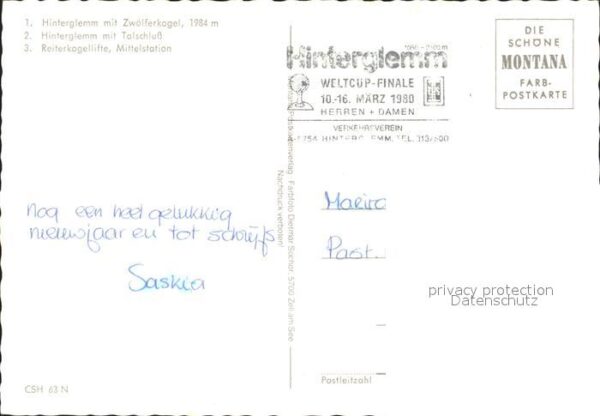 1. Hinterglemm mit Zwölferkogel, 1984 m
2. Hinterglemm mit Talschluß
3. Reiterkogellifte, Mittelstation
Hinterglemm
WELTCUP-FINALE
10.-16. MÄRZ 1980
HERREN + DAMEN
VERKEHRSVEREIN
DIE
SCHÖNE
MONTANA
FARB-
POSTKARTE
Farbfoto Dietmar Sochor, 5700 Zell am See
Nachdruck verboten!
nog een heel gelukkig
nieuwjaar en tot schrijfs
Saskia
Past.
privacy protection
Datenschutz
Postleitzahl
CSH 63 N